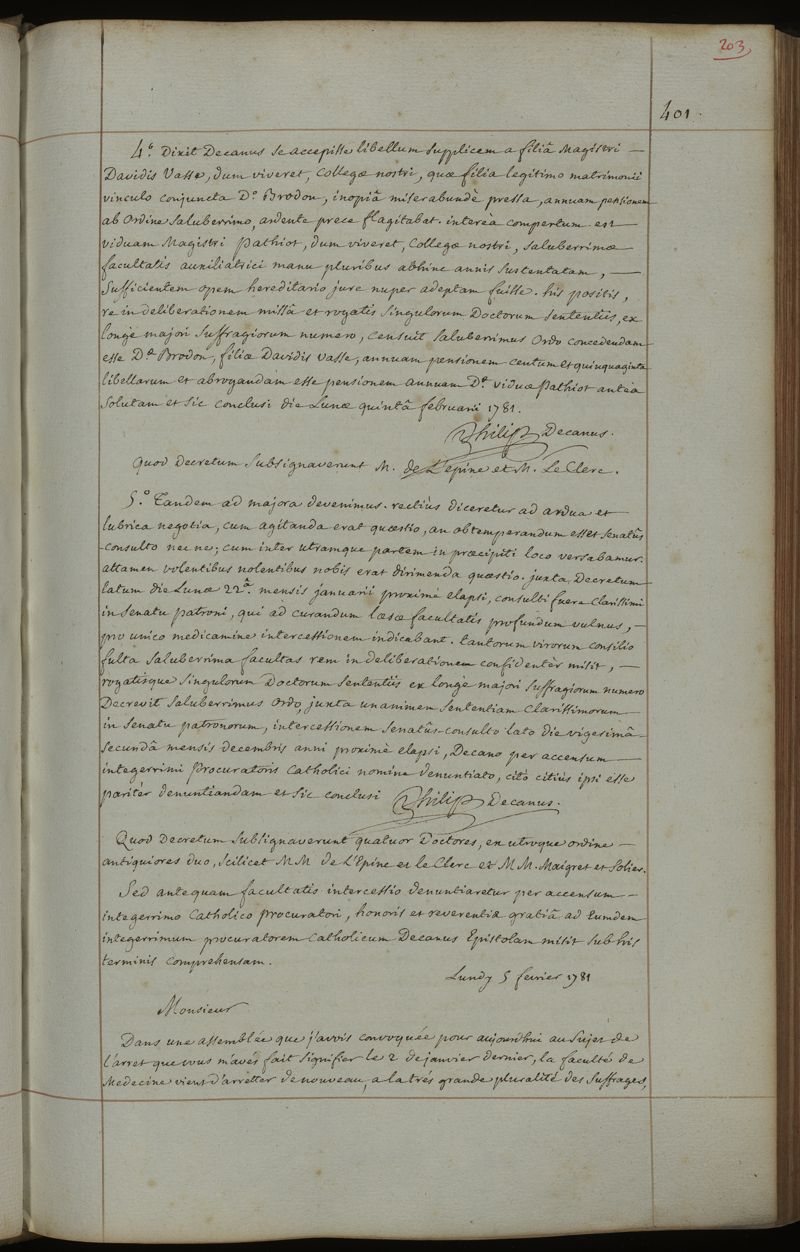 203
401.
4.° Dixit Decanus se accepisse libellum supplicem a filiâ Magistri —
Davidis Vasse, dum viveret, Collegæ nostri, quæ filia legitimo matrimonii
vinculo conjuncta D.° Brodon, inopiâ miserabundè pressa, annuam pensionem
ab Ordine Saluberrimo, ardente prece flagitabat. interèa compertum est
viduam Magistri Pathiot, dum viveret, Collegæ nostri, saluberrimæ
facultatis auxiliatrici manu pluribus abhinc annis sustentatam, —
sufficientem opem hereditario jure nuper adeptam fuisse. his positis,
re in deliberationem missâ et rogatis singulorum Doctorum sententiis, ex
longè majori suffragiorum numero, censuit saluberrimus Ordo concedendam
esse D.æ Brodon, filiæ Davidis Vasse, annuam pensionem centum et quinquaginta
libellarum et abrogandam esse pensionem annuam D.æ viduæ Pathiot antèa
solutam et sic conclusi die Lunæ quintâ februarii 1781.
Philip Decanus.
Quod Decretum subsignaverunt M. de L'epine et M. Le Clerc.
5.° Tandem ad majora devenimus. rectiùs diceretur ad ardua et
lubrica negotia, cum agitanda erat quæstio, an obtemperandum esset Senatûs
-consulto nec ne; cum inter utramque partem in præcipiti loco versabamur.
attamen volentibus nolentibus nobis erat dirimenda quæstio. juxta Decretum
latum die Lunæ 22.â mensis januarii proximè elapsi, consulti fuere Clarissimi
in Senatu patroni, qui ad curandum læsæ facultatis profundum vulnus, —
pro unico medicamine intercessionem indicabant. tantorum virorum consilio
fulta saluberrima facultas rem in deliberationem confidentèr misit, —
rogatisque singulorum Doctorum sententiis ex longè majori suffragiorum numero
Decrevit saluberrimus Ordo, juxta unanimem sententiam Clarissimorum
in Senatu patronorum, intercessionem Senatûs-consulto lato die vigesimâ
secundâ mensis decembris anni proximè elapsi, Decano per accensum —
integerrimi Procuratoris Catholici nomine denuntiato, citò citiùs ipsi esse
paritèr denuntiandam et sic conclusi Philip Decanus.
Quod Decretum subsignaverunt quatuor Doctores, ex utroque ordine —
antiquiores duo, scilicet MM de L'Epine et le Clerc et MM. Maigret et Solier.
Sed antequam facultatis intercessio denuntiaretur per accensum —
integerrimo Catholico procuratori, honoris et reverentiæ gratiâ ad Eumdem
integerrimum procuratorem Catholicum Decanus Epistolam misit sub his
terminis comprehensam.
Lundy 5 fevrier 1781
Monsieur
Dans une assemblée que j'avois convoquée pour aujourdhui au sujet de
l'arret que vous m'avés fait signifier le 2 de janvier dernier, la faculté de
Medecine vient d'arrêtter de nouveau, a la trés grande pluralité des suffrages,